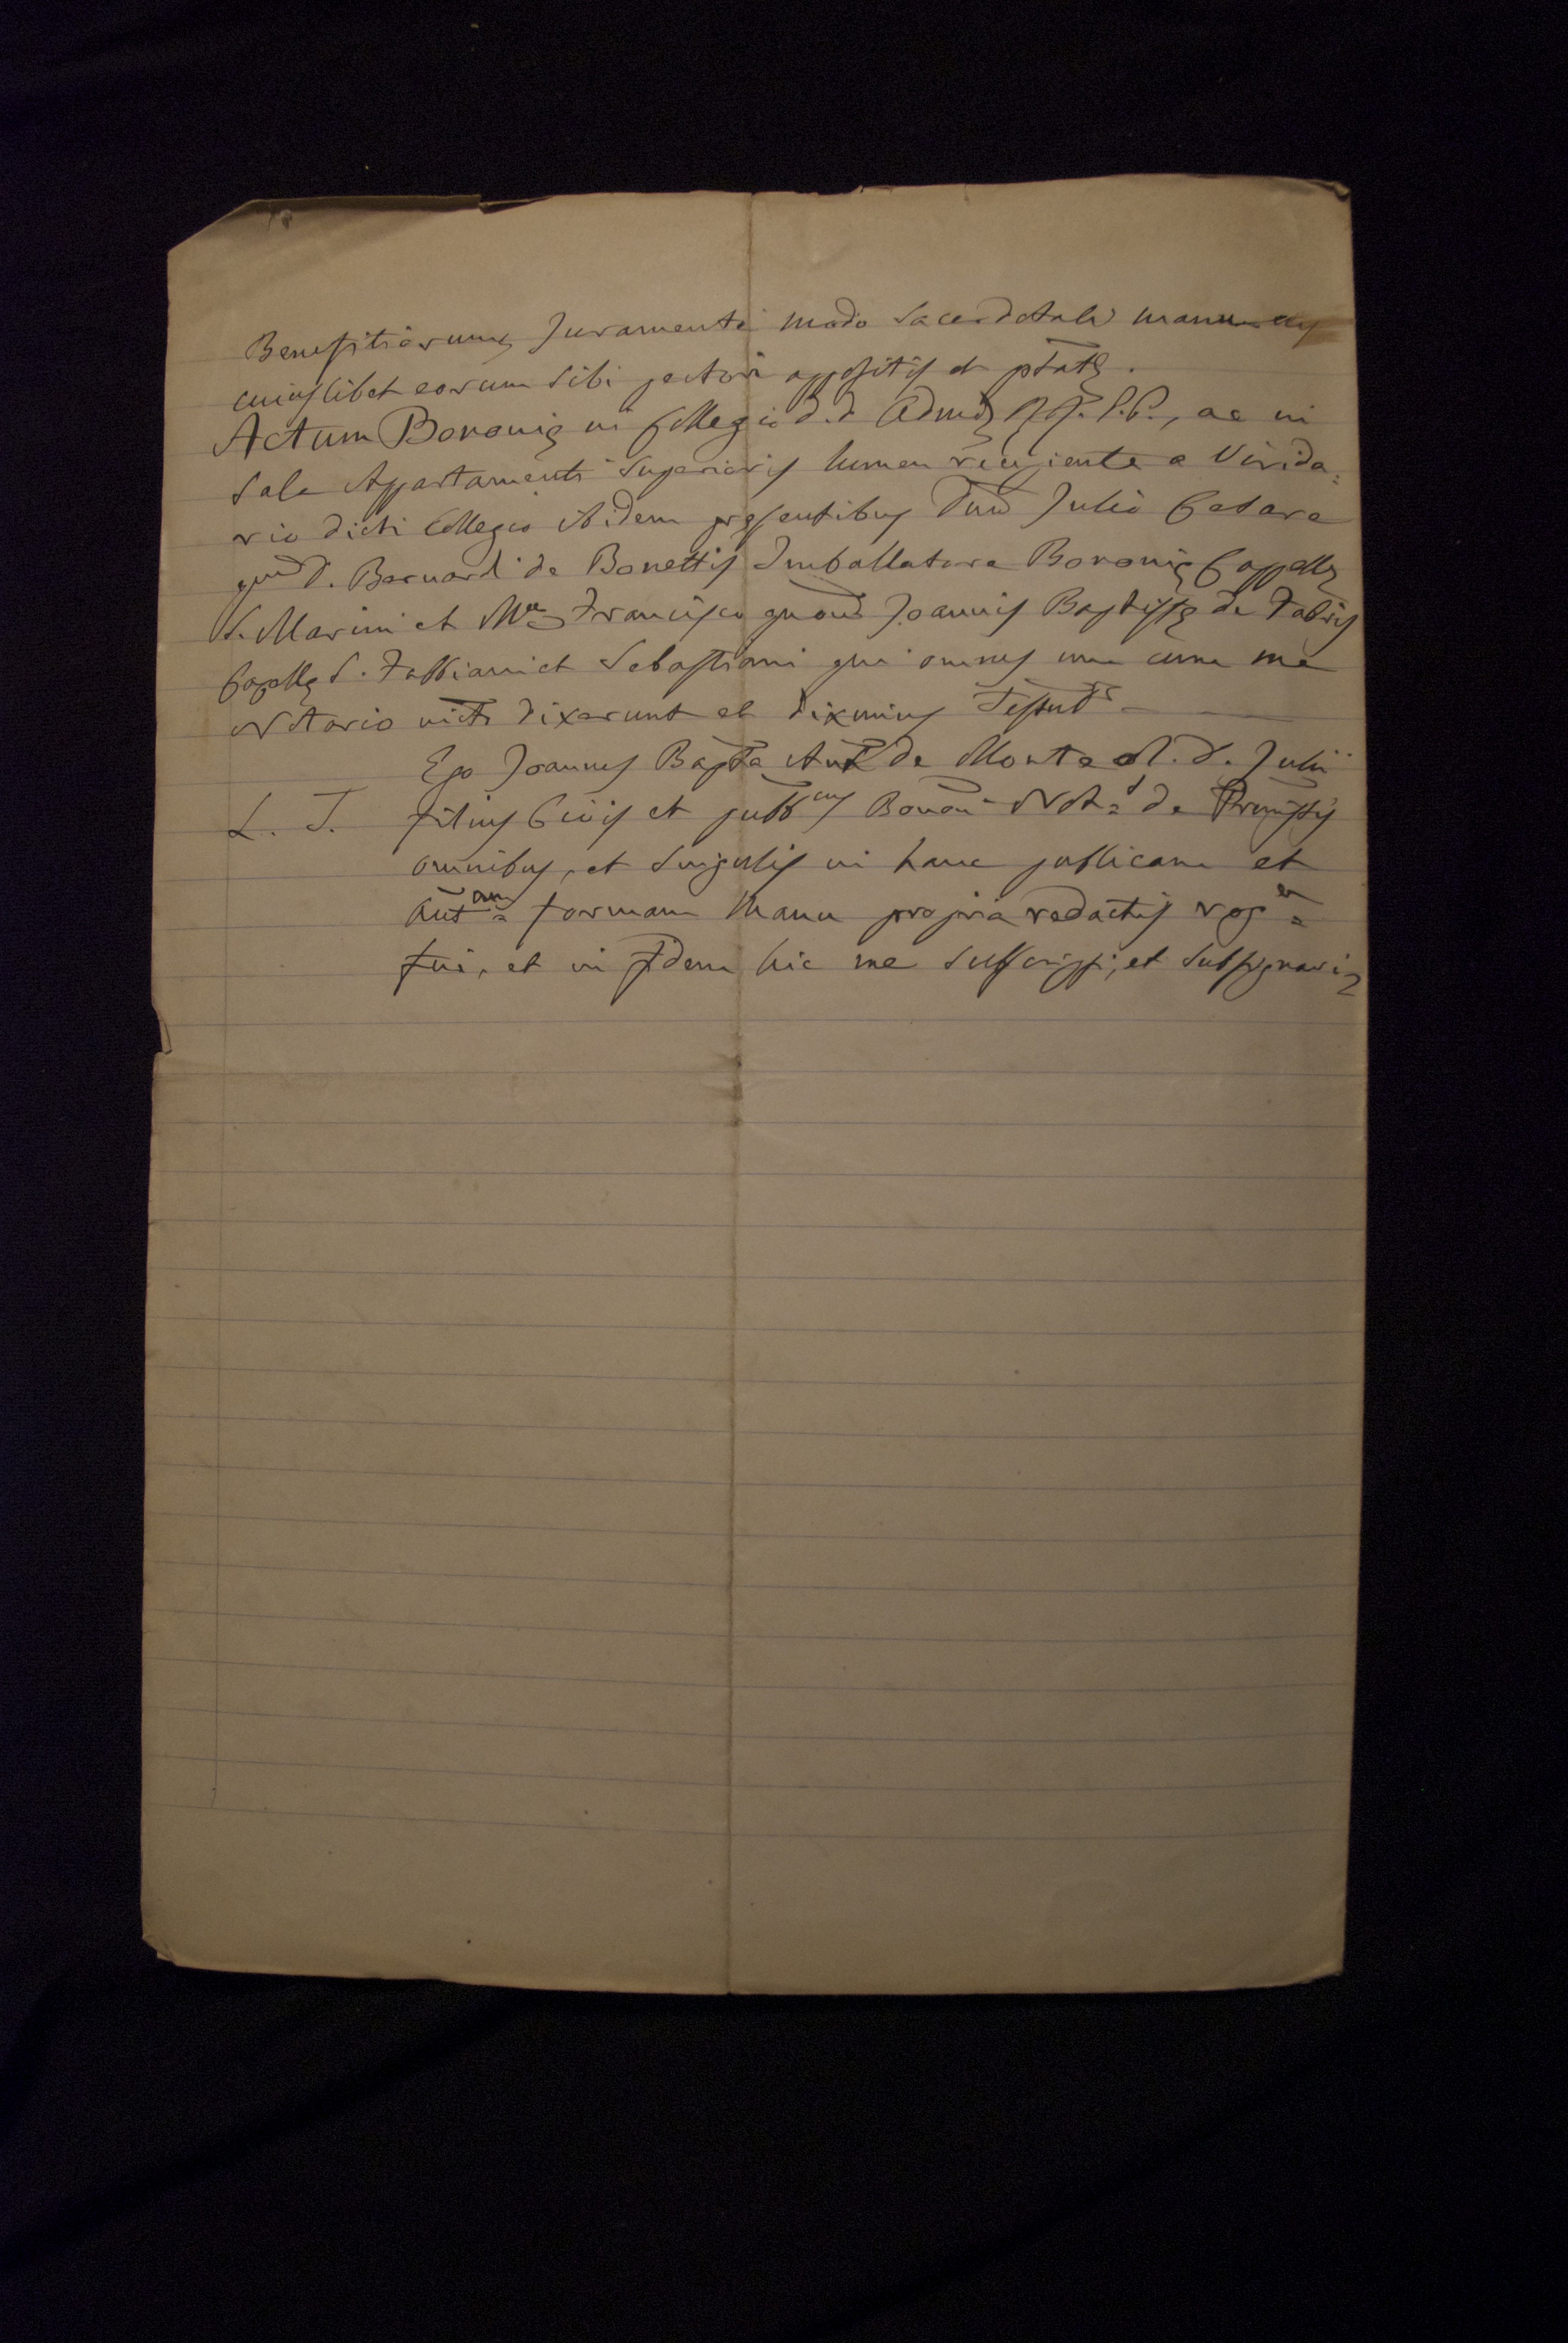 Benefitiorumq Juramenti modo sacerdotali manu
cuiuslibet eorum sibi pectori appositis et pstatę.
Actum Bononię in Collegio d.d. Admd RR. P.P., ac in
sala Appartamenti superioris lumen recipiente a Virida=
rio dicti Collegio ibidem pręsentibus Dno Julio Cesare
qm D. Bernardi de Bonettis Imballatore Bononię Cappellę
S. Marini et Mro Francisco quond Joannis Baptistę de Fabris
Capellę S. Fabbiani et Sebastiani qui omnes una cum me
Notario dixerunt et diximus
Ego Joannes Bapta Ant de Monte ol. D. Julii
L. T. filius Civis et pubbcus Bonon Not= de Premissis
omnibus, et singulis in hanc publicam et
autam= formam manu propria redactis rogr=
fui, et in fidem hic me subscripsi, et subsignavi